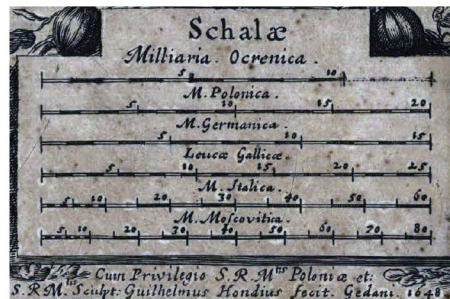 Schalæ
Milliaria. Ocrenica.
5 10
M. Polonica.
5 10 15 20
M. Germanica.
5 10 15
Leucæ Gallicæ.
5 10 15 20 25
M. Italica.
5 10 20 30 40 50 60
M. Moscovitica.
5 10 20 30 40 50 60 70 80
Cum Privilegio S. R. M.tis Poloniæ et:
S. R. M.tis Sculpt: Guilhelmus Hondius fecit. Gedani. 1648.